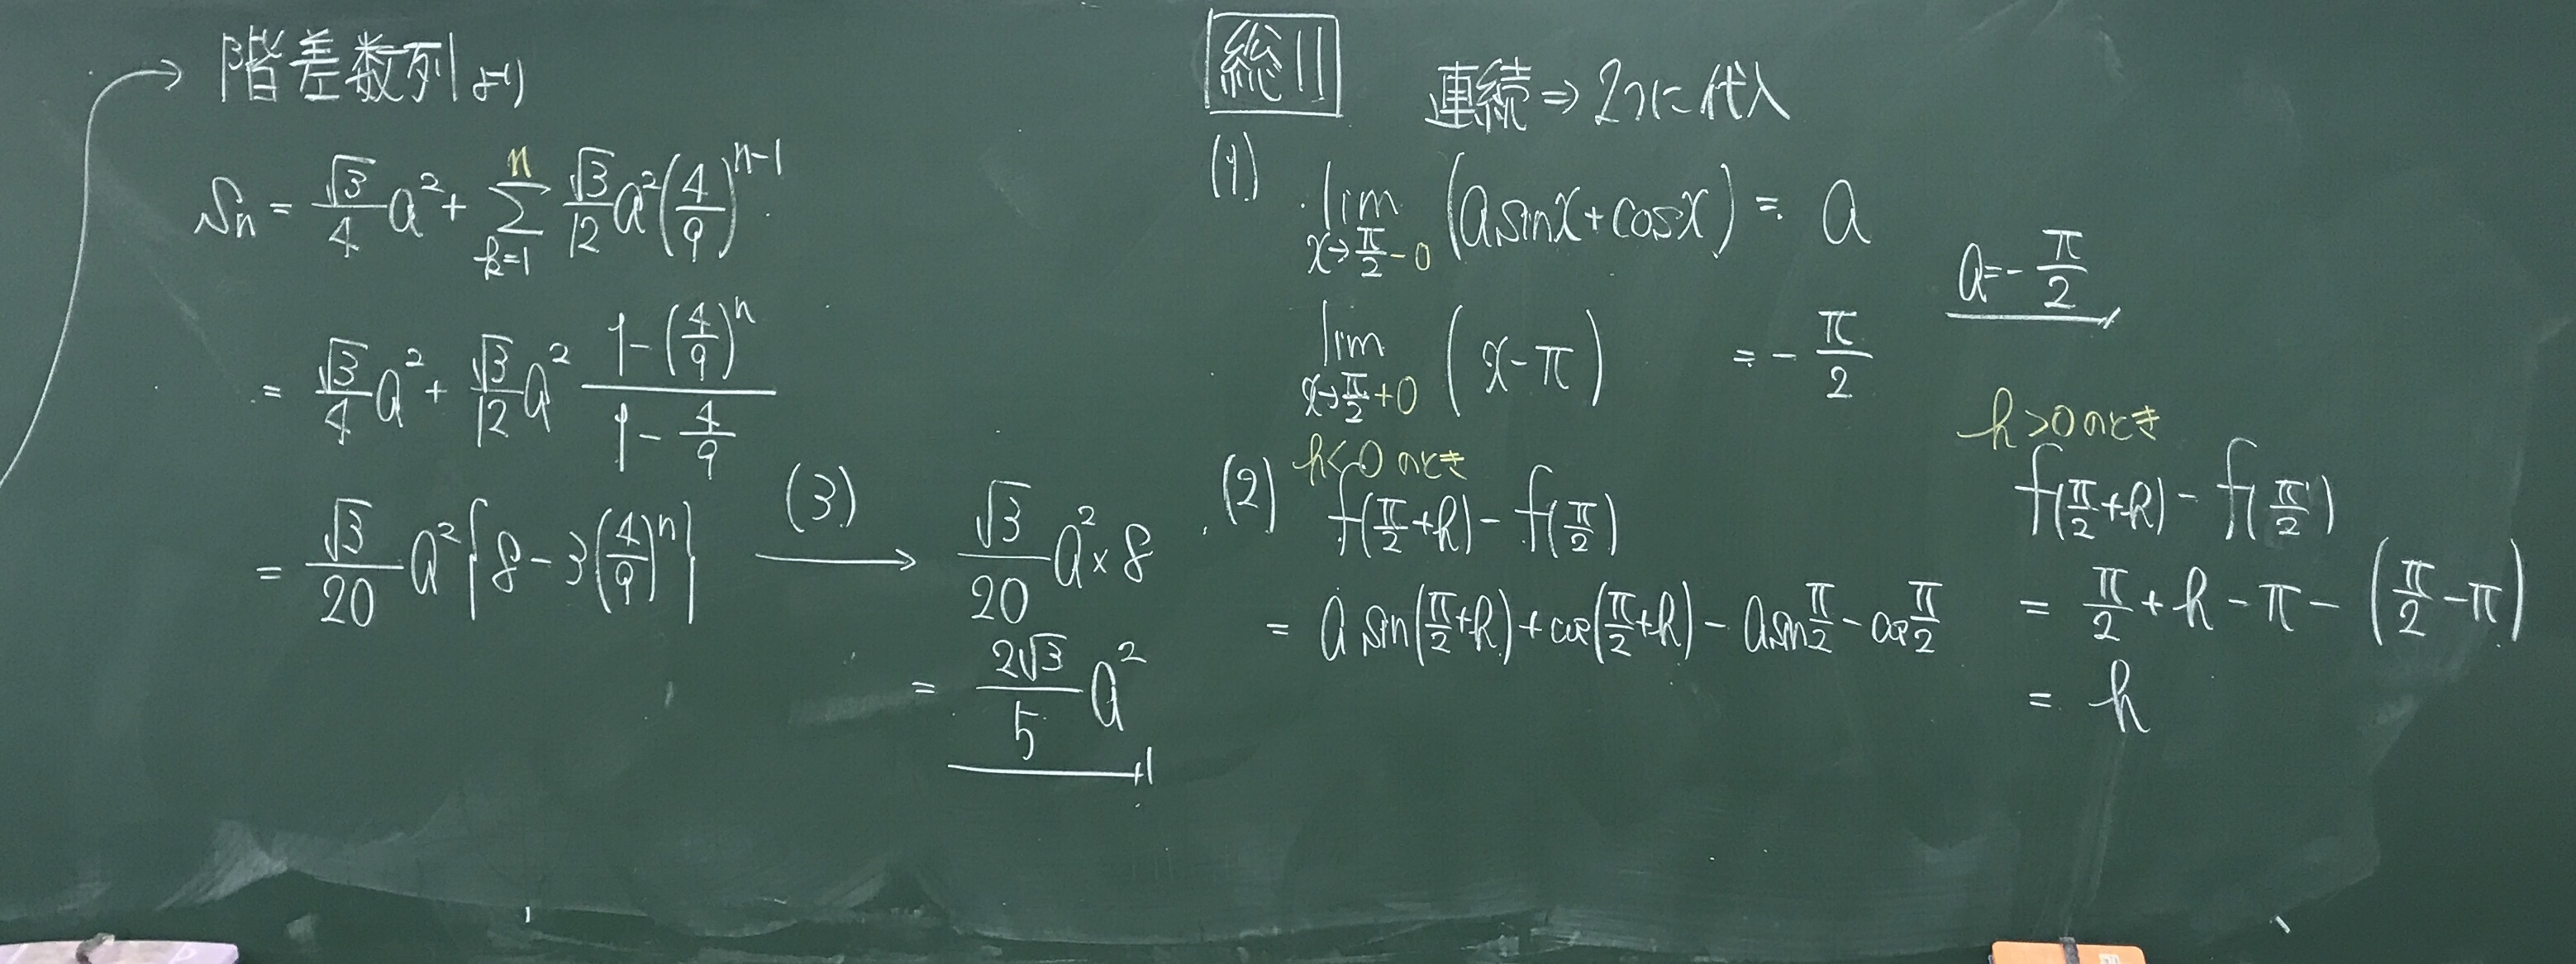 階差数列より
Sn = √3/4 a² + Σ[k=1, n] √3/12 a² (4/9)^(n-1)
= √3/4 a² + √3/12 a² (1-(4/9)^n)/(1-4/9)
= √3/20 a² {8-3(4/9)^n}
(3) → √3/20 a² × 8
= 2√3/5 a²
総11 連続⇒2つに代入
(1) lim x→π/2-0 (a sinx + cosx) = a
lim x→π/2+0 (x-π) = -π/2
a = -π/2
(2) h<0のとき
f(π/2+h) - f(π/2)
= a sin(π/2+h) + cos(π/2+h) - a sin π/2 - cos π/2
h>0のとき
f(π/2+h) - f(π/2)
= π/2 + h - π - (π/2 - π)
= h